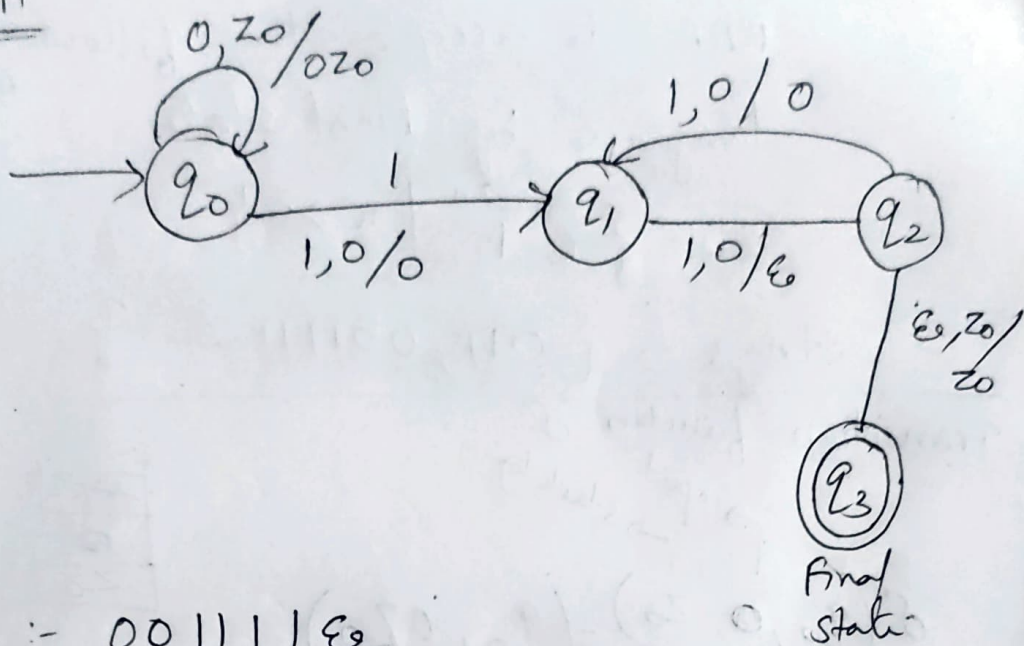 0,Z0/0Z0
1,0/0
q0
1
q1
q2
1,0/0
1,0/ε
ε,Z0/Z0
q3
Final
state
:- 001111ε